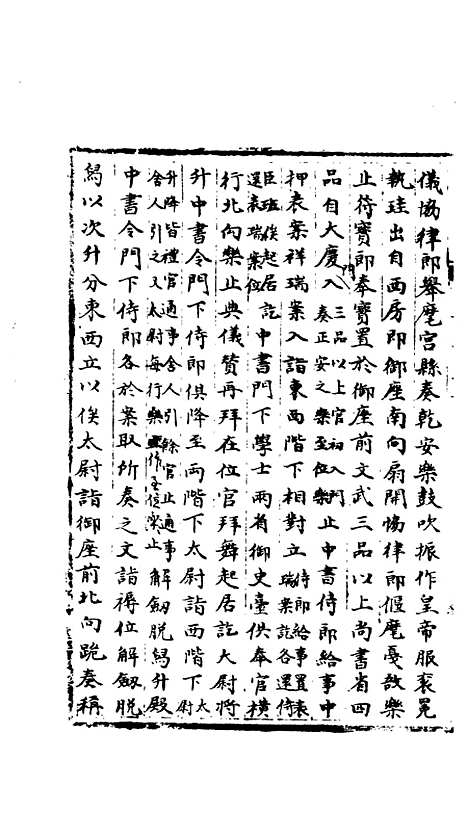 儀協律郎舉麾宮縣奏乾安樂鼓吹振作皇帝服袞冕
執珪出自西房即御座南向扇開協律郎偃麾戞敔樂
止符寶郎奉寶置於御座前文武三品以上尚書省四
品自大慶門入三品以上官初入門奏正安之樂至位樂止中書侍郎給事中
押表案祥瑞案入詣東西階下相對立侍郎給事置表瑞案訖各還侍
臣班俟起居訖還表瑞案位中書門下學士兩省御史臺供奉官橫
行北向樂止典儀贊再拜在位官拜舞起居訖太尉將
升中書令門下侍郎俱降至兩階下太尉詣西階下太尉
升降皆禮官通事舍人引餘官止通事舍人引之又太尉每行樂作至位樂止解劔脱舄升殿
中書令門下侍郎各於案取所奏之文詣褥位解劔脱
舄以次升分東西立以俟太尉詣御座前北向跪奏稱